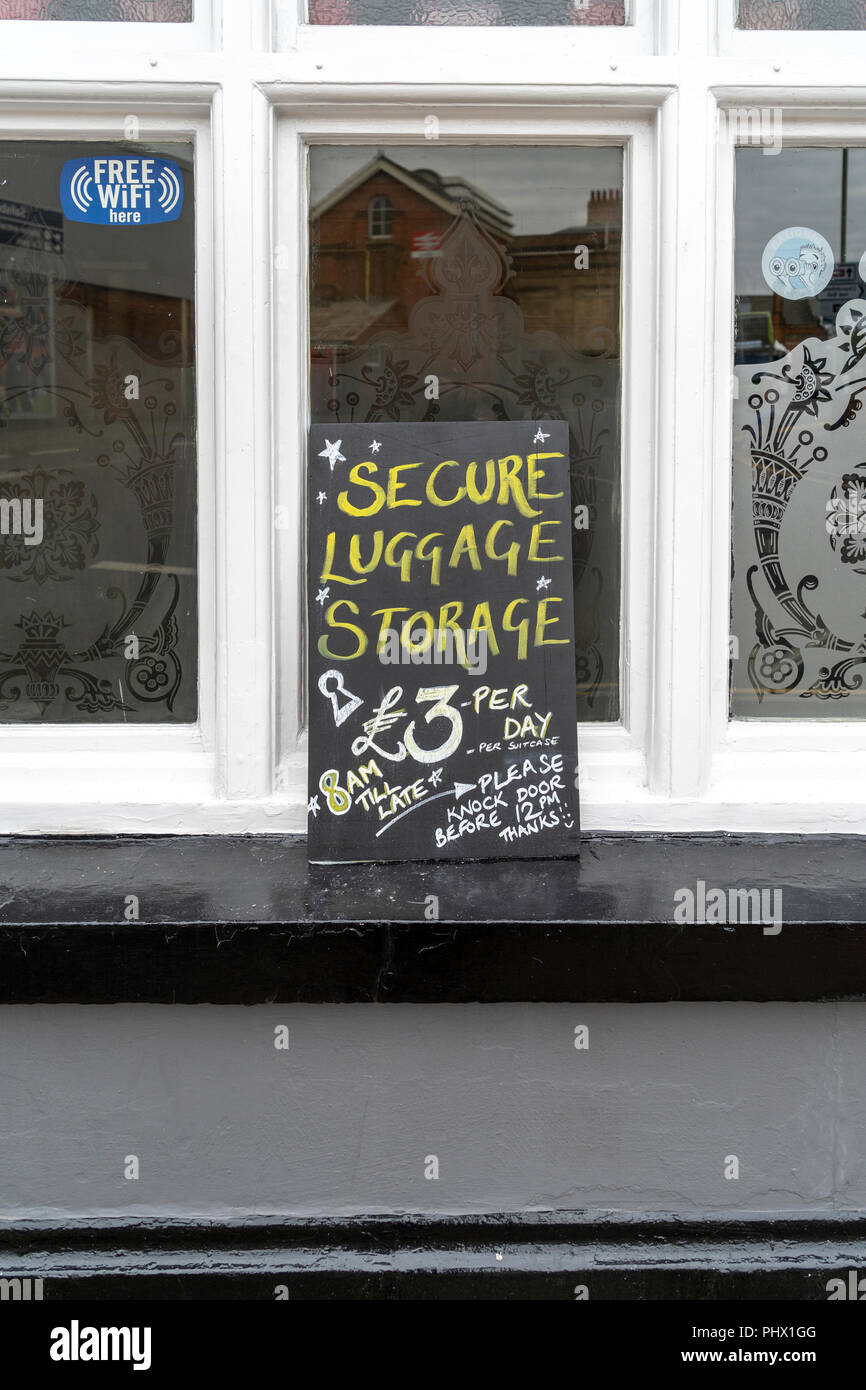 FREE
WiFi
here
SECURE
LUGGAGE
STORAGE
£3-PER
DAY
- PER SUITCASE
8AM
TILL
LATE
PLEASE
KNOCK DOOR
BEFORE 12PM
THANKS!!
a
alamy stock photo
PHX1GG
www.alamy.com